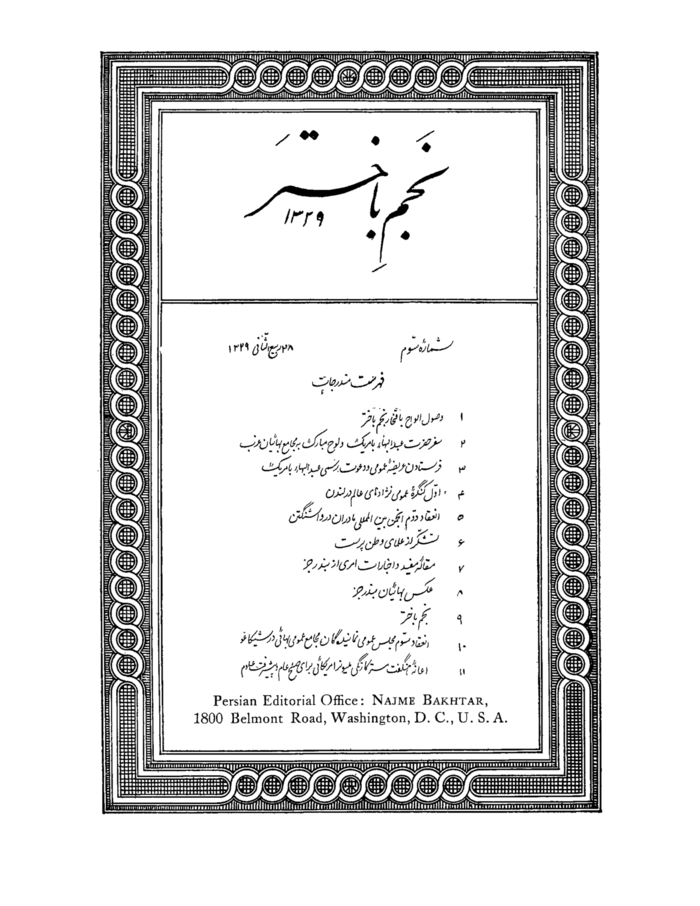 نجم باختر
۱۳۲۹
شمارهٔ سوم ۲۸ ربیع الثانی ۱۳۲۹
فهرست مندرجات
۱ وصول الواح بافتخار نجم باختر
۲ سفر حضرت عبدالبهاء بامریک و لوح مبارک به مجامع بهائیان غرب
۳ فرستادن عریضهٔ عمومی و دعوت رسمی عبدالبهاء بامریک
۴ اول کنگرهٔ عمومی نژادهای عالم در لندن
۵ انعقاد دوم انجمن بین المللی مادران در واشنگتن
۶ تشکر از علمای وطن پرست
۷ مقالهٔ مفید و اخبارات امری از بندر جز
۸ عکس بهائیان بندر جز
۹ نجم باختر
۱۰ انعقاد سوم مجلس عمومی نمایندگان مجامع عمومی بهائی در شیکاغو
۱۱ اعانهٔ هنگفت مستر کارنگی ملیونر امریکائی برای صلح عام و پیشرفت علوم
Persian Editorial Office: NAJME BAKHTAR,
1800 Belmont Road, Washington, D. C., U. S. A.